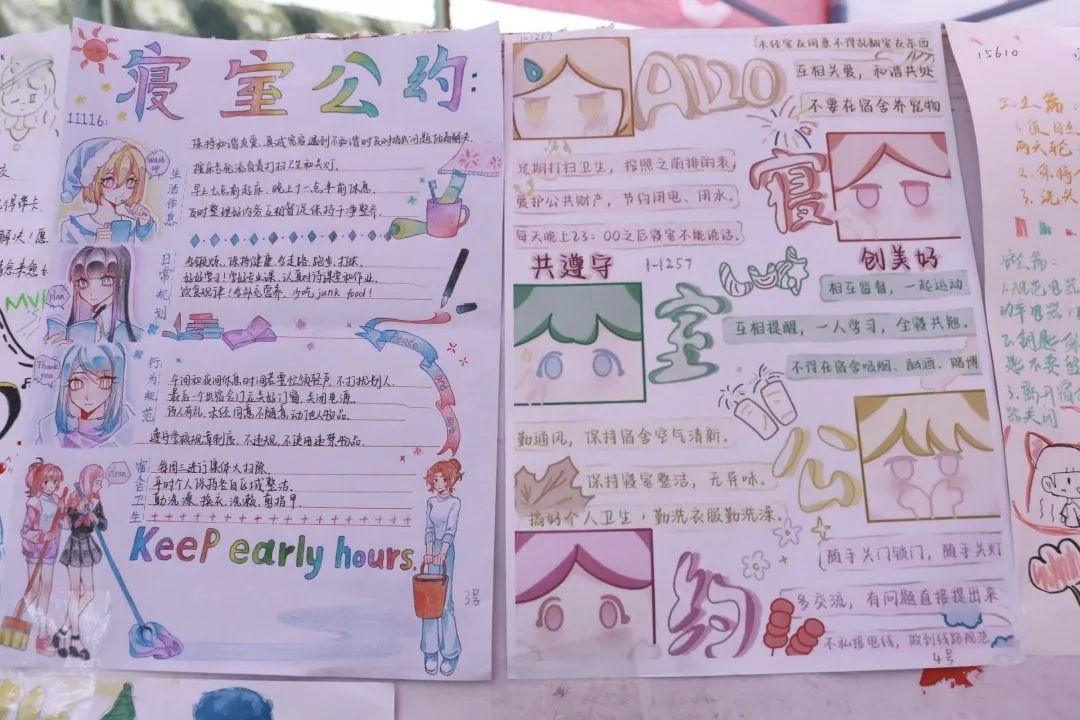 寝室公约:
11116:
保持和谐友爱,真诚宽容遇到不和谐时及时指出问题协商解决.
Wash up
生活作息
寝室长轮流负责打扫卫生和关灯.
早上七点前起床,晚上十一点半前休息.
及时整理好内务互相督促保持干净整齐.
日常规划
多锻炼,保持健康,多走路,跑步,打球.
好好学习!学好专业课,认真对待课堂和作业.
饮食规律!多补充营养,少吃 junk food!
plan
Peace and love
Thank you
行为规范
午间和夜间休息时间若要忙须轻声,不打扰别人.
最后一个出宿舍门应关好门窗,关闭电源.
待人有礼,未经同意不随意动他人物品.
遵守学校规章制度,不违规,不使用违禁物品.
宿舍卫生
每周三进行集体大扫除.
平时个人保持各自区域整洁.
勤洗澡,换衣,洗漱,剪指甲.
Clean
KeeP early hours.
3号
1-1257
A1120
未经室友同意不得乱翻室友东西
互相关爱,和谐共处
不要在宿舍养宠物
定期打扫卫生,按照之前排的表,
爱护公共财产,节约用电、用水.
每天晚上23:00之后寝室不能说话.
寝
共遵守
1-1257
创美好
室
相互监督,一起运动
互相提醒,一人学习,全寝共勉.
不得在宿舍吸烟、酗酒、赌博
勤通风,保持宿舍空气清新.
保持寝室整洁,无异味.
搞好个人卫生,勤洗衣服勤洗澡.
公
约
随手关门锁门,随手关灯
多交流,有问题直接提出来
不私接电线,做到线路规范
4号
15610